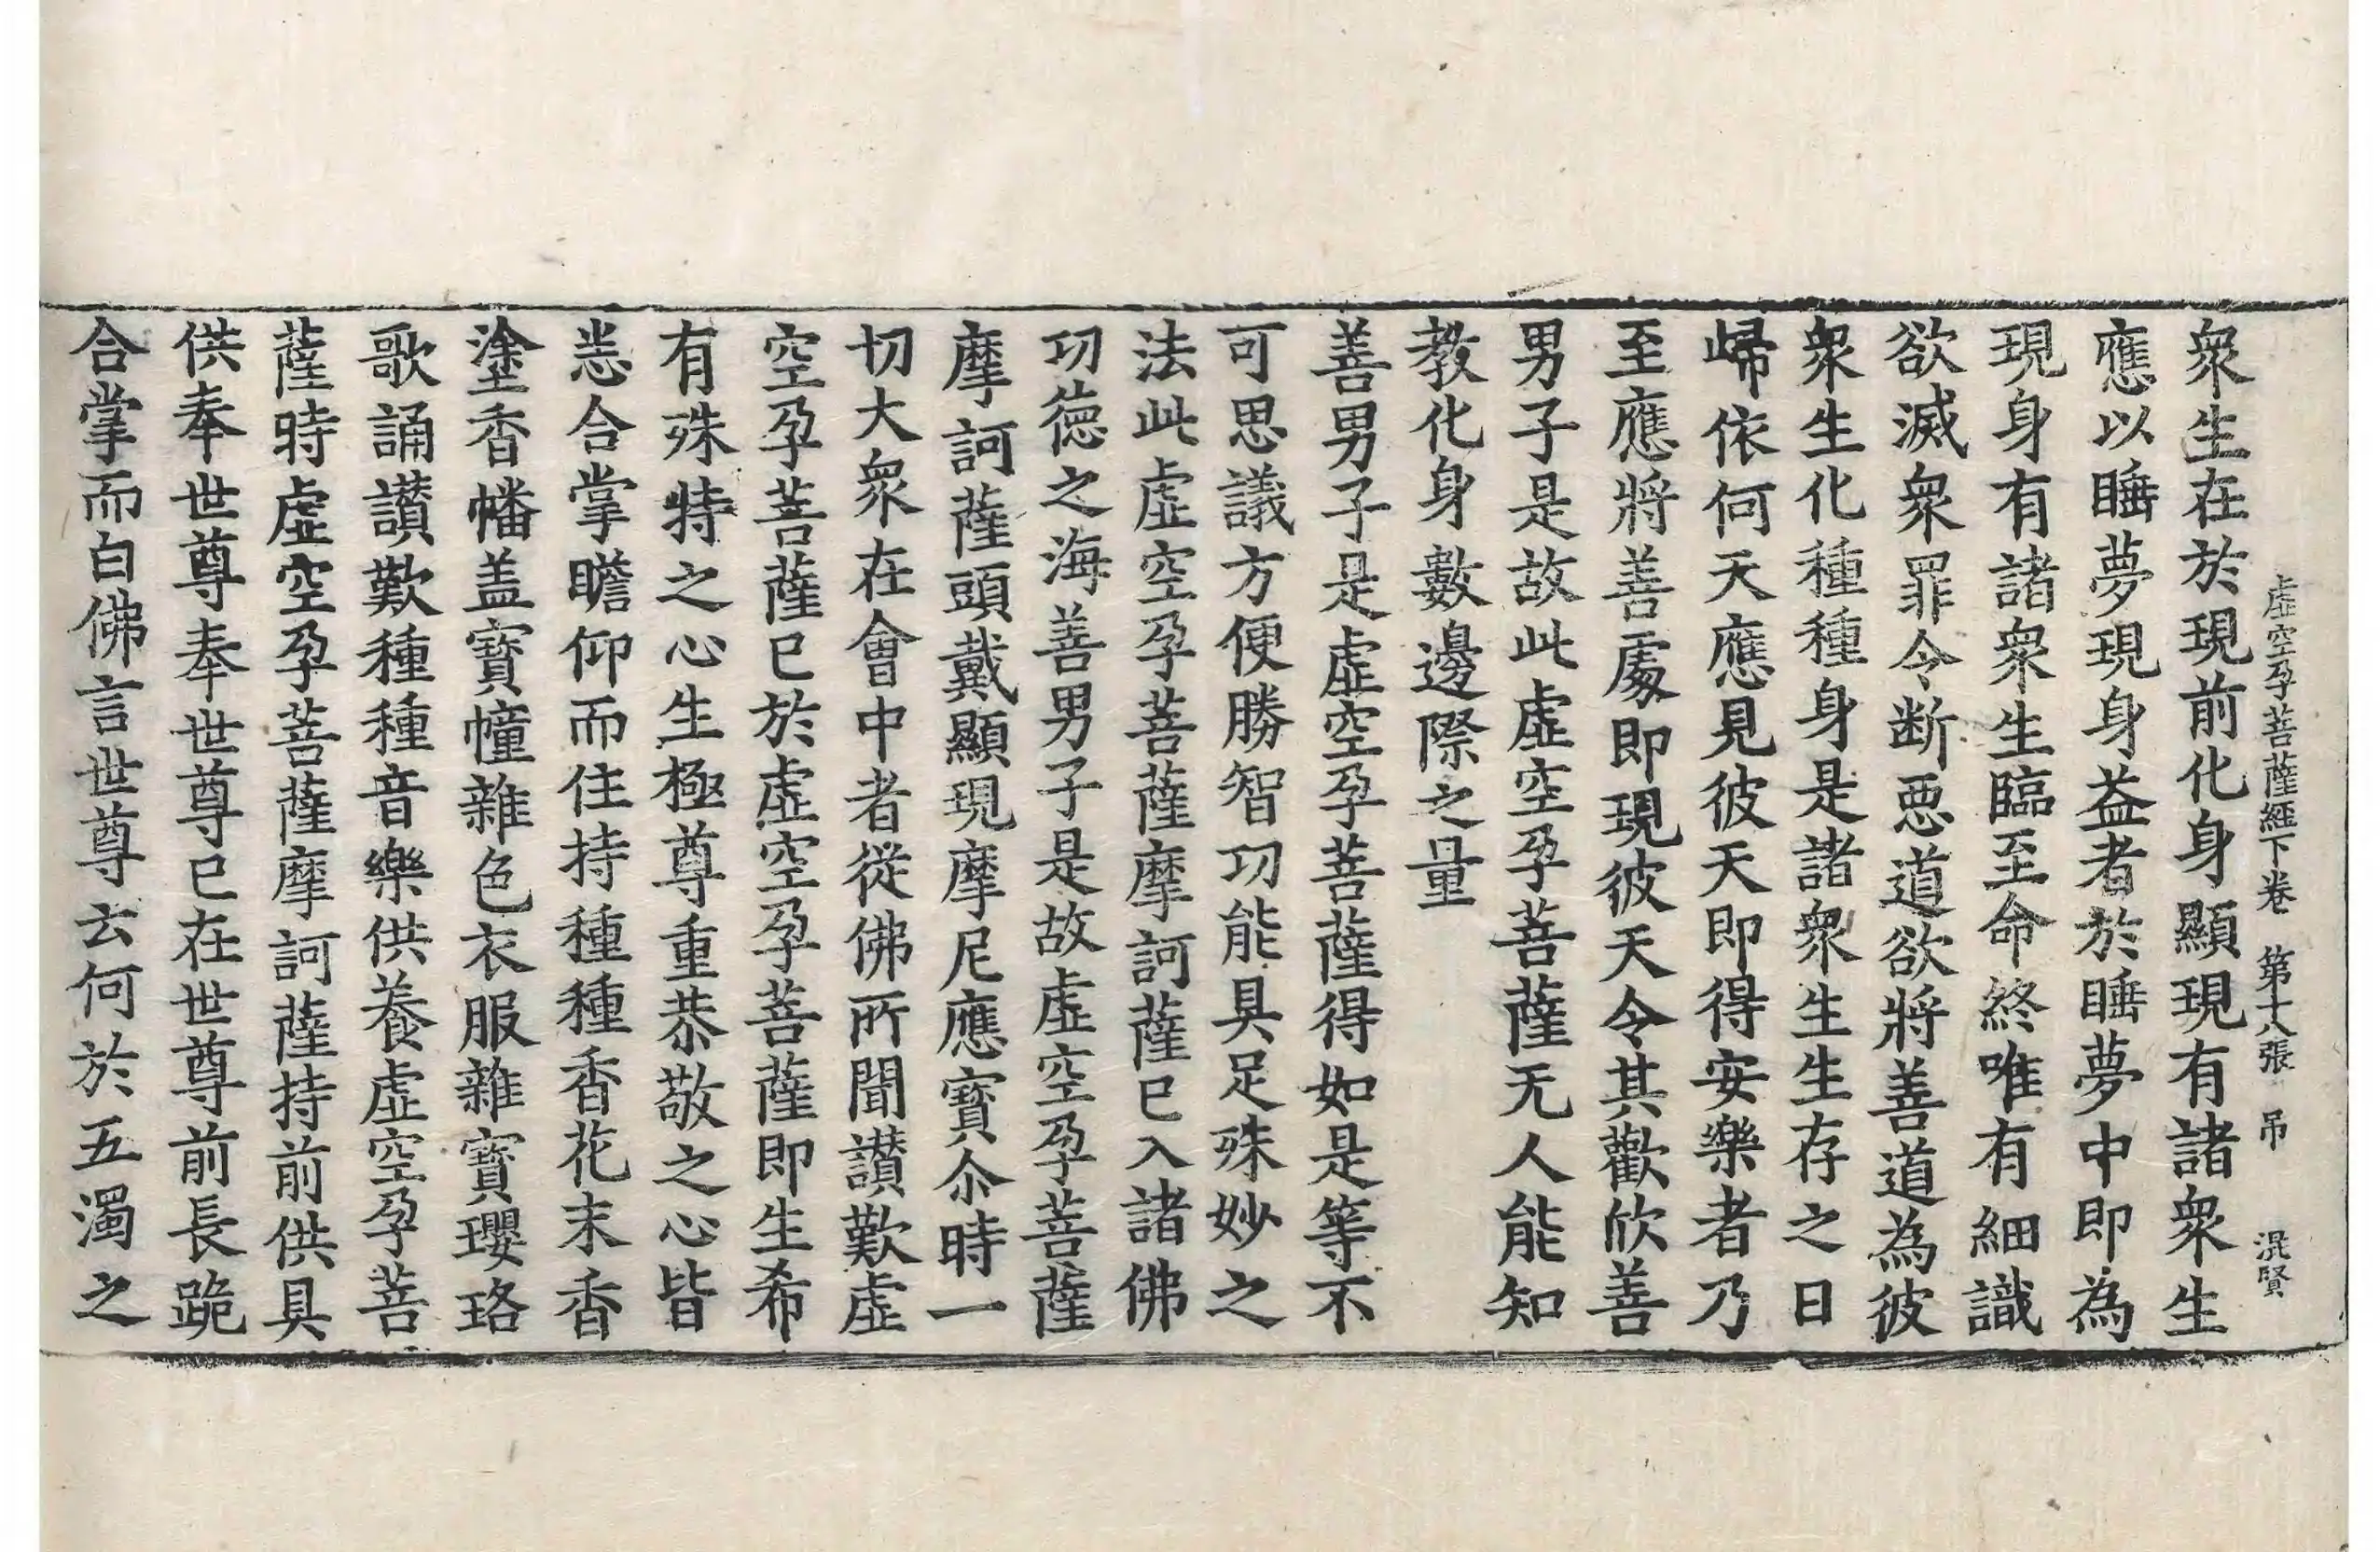 虛空孕菩薩經下卷 第十八張 吊 混賢
衆生在於現前化身顯現有諸衆生
應以睡夢現身益者於睡夢中即為
現身有諸衆生臨至命終唯有細識
欲滅衆罪令断惡道欲將善道為彼
衆生化種種身是諸衆生生存之日
歸依何天應見彼天即得安樂者乃
至應將善處即現彼天令其歡欣善
男子是故此虛空孕菩薩无人能知
教化身數邊際之量
善男子是虛空孕菩薩得如是等不
可思議方便勝智功能具足殊妙之
法此虛空孕菩薩摩訶薩已入諸佛
功德之海善男子是故虛空孕菩薩
摩訶薩頭戴顯現摩尼應寶尒時一
切大衆在會中者從佛所聞讃歎虛
空孕菩薩已於虛空孕菩薩即生希
有殊特之心生極尊重恭敬之心皆
悉合掌瞻仰而住持種種香花末香
塗香幡盖寶幢雜色衣服雜寶瓔珞
歌誦讃歎種種音樂供養虛空孕菩
薩時虛空孕菩薩摩訶薩持前供具
供奉世尊奉世尊已在世尊前長跪
合掌而白佛言世尊云何於五濁之